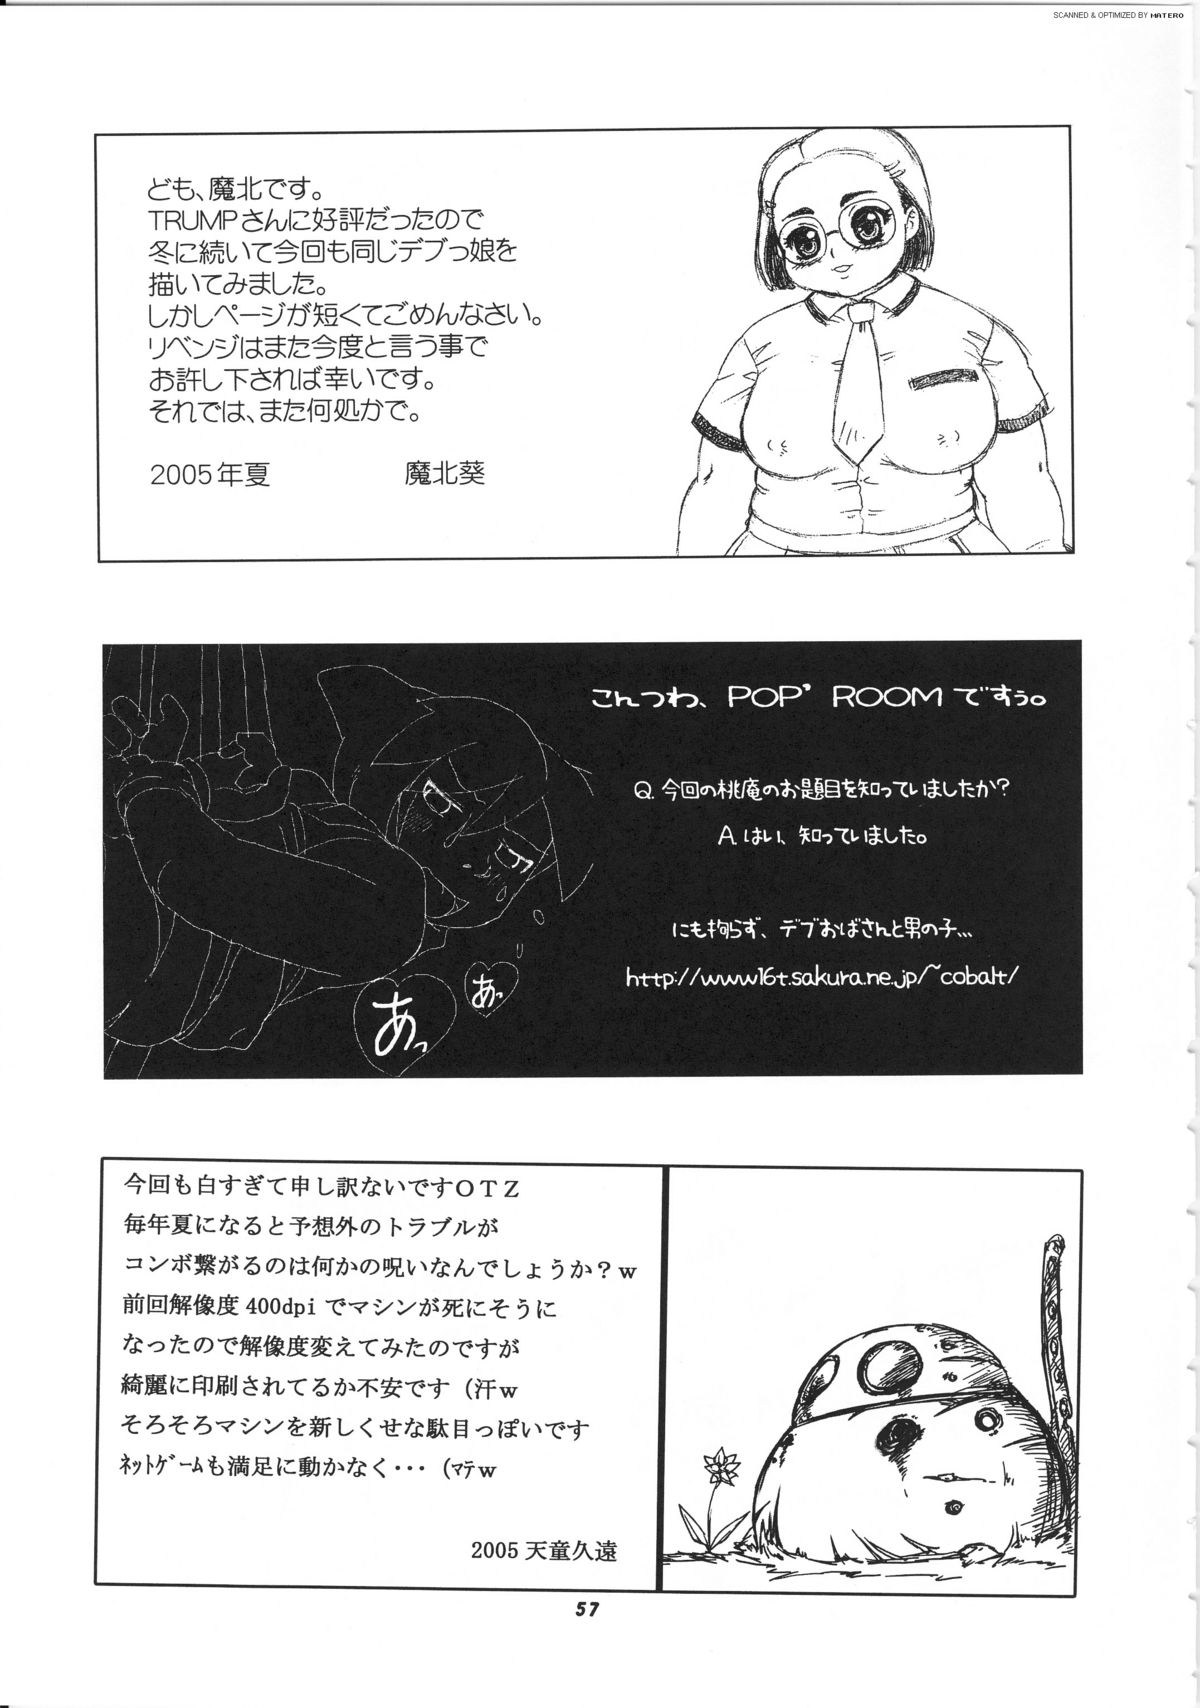 SCANNED & OPTIMIZED BY MATERO
ども、魔北です。
TRUMPさんに好評だったので
冬に続いて今回も同じデブっ娘を
描いてみました。
しかしページが短くてごめんなさい。
リベンジはまた今度と言う事で
お許し下されば幸いです。
それでは、また何処かで。
2005年夏 魔北葵
こんつわ、POP' ROOMですぅ。
Q.今回の桃庵のお題目を知っていましたか?
A.はい、知っていました。
にも拘らず、デブおばさんと男の子…
http://www16t.sakura.ne.jp/~cobalt/
あっ
あっ
今回も白すぎて申し訳ないですOTZ
毎年夏になると予想外のトラブルが
コンボ繋がるのは何かの呪いなんでしょうか?w
前回解像度400dpiでマシンが死にそうに
なったので解像度変えてみたのですが
綺麗に印刷されてるか不安です(汗w
そろそろマシンを新しくせな駄目っぽいです
ﾈｯﾄｹﾞｰﾑも満足に動かなく・・・(ﾏﾃw
2005 天童久遠
57